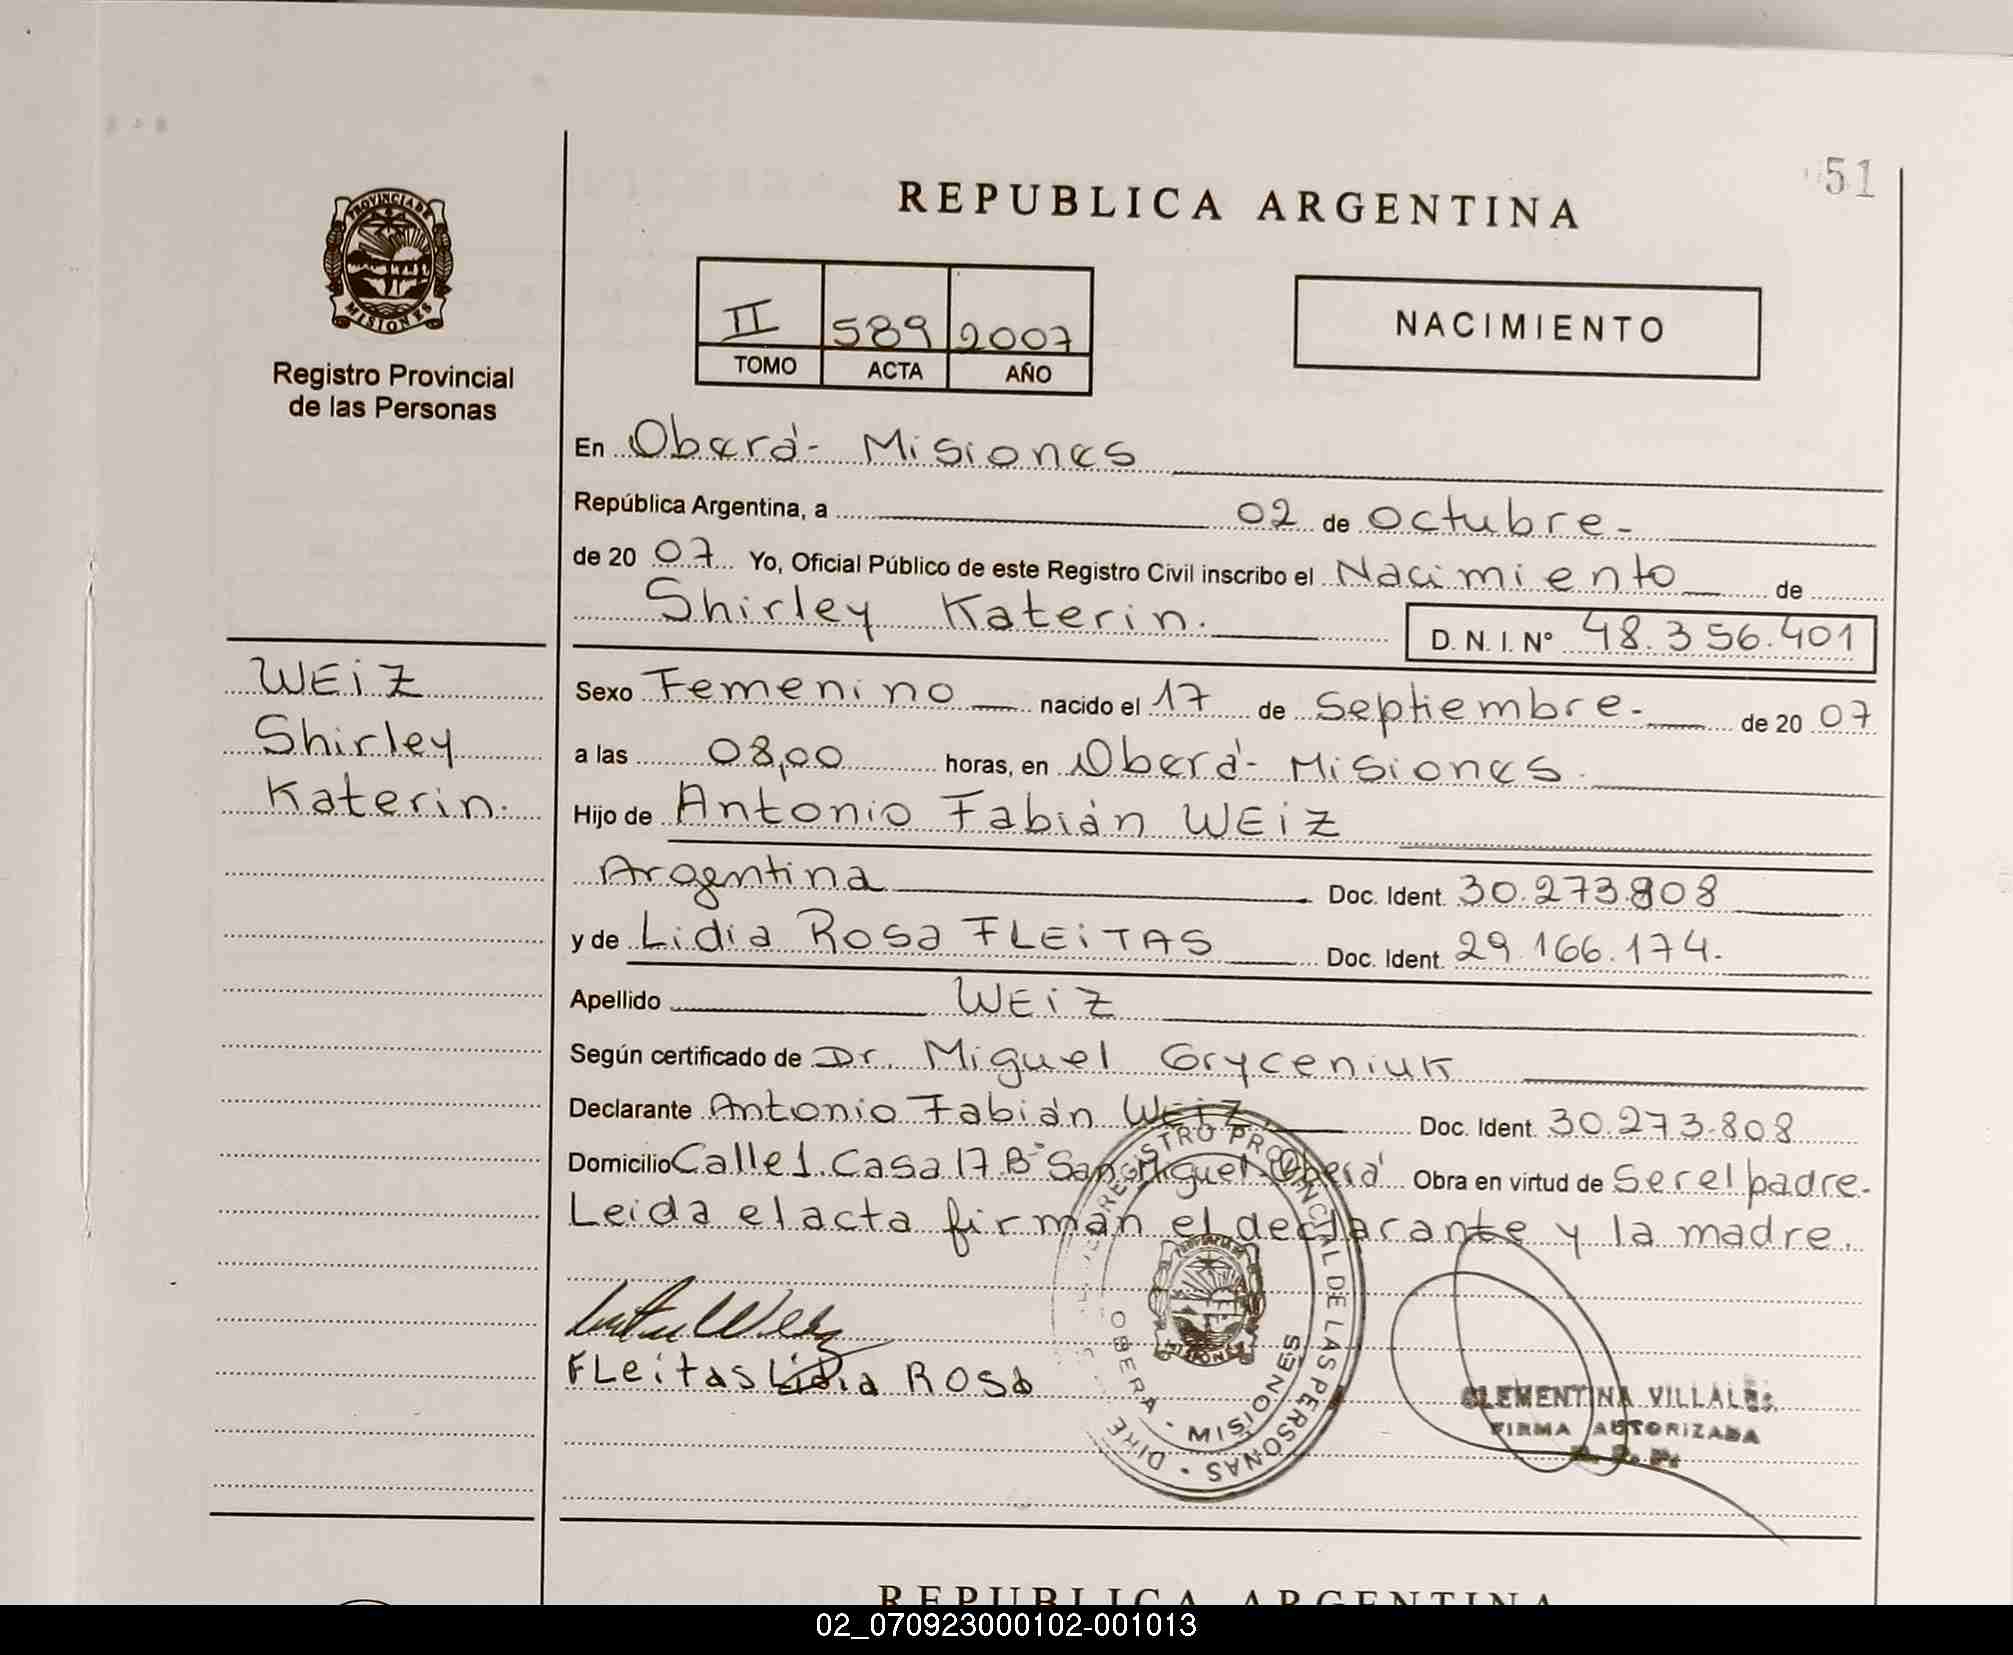 051
REPUBLICA ARGENTINA
PROVINCIA DE
MISIONES
Registro Provincial
de las Personas
II 589 2007
TOMO ACTA AÑO
NACIMIENTO
En Oberá - Misiones
República Argentina, a 02 de Octubre -
de 20 07 Yo, Oficial Público de este Registro Civil inscribo el Nacimiento de
Shirley Katerin. D. N. I. N° 48.356.401
WEiZ
Shirley
Katerin.
Sexo Femenino nacido el 17 de Septiembre - de 20 07
a las 08,00 horas, en Oberá - Misiones.
Hijo de Antonio Fabián WEiZ
Argentina Doc. Ident. 30.273.808
y de Lidia Rosa FLEiTAS Doc. Ident. 29.166.174.
Apellido WEiZ
Según certificado de Dr. Miguel Gryceniuk
Declarante Antonio Fabián WEiZ, Doc. Ident. 30.273.808
Domicilio Calle 1 Casa 17 B° San Miguel - Oberá Obra en virtud de Ser el padre.
Leida el acta firman el declarante y la madre.
FLeitas Lidia Rosa
REGISTRO PROVINCIAL DE LAS PERSONAS
OBERA - MISIONES
CLEMENTINA
FIRMA AUTORIZADA
REPUBLICA ARGENTINA
02_070923000102-001013